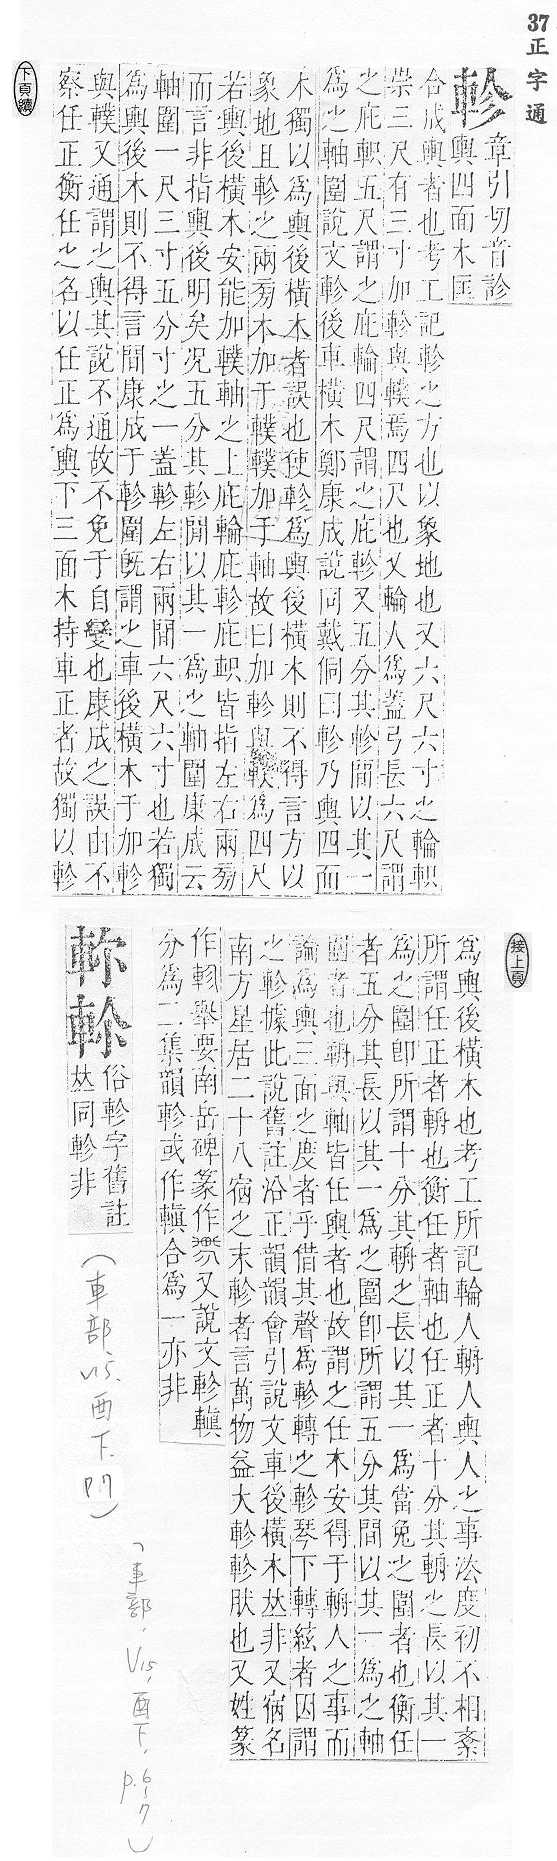 37正字通
軫
章引切音診
輿四面木匡
合成輿者也考工記軫之方也以象地也又六尺六寸之輪軹
崇三尺有三寸加軫與轐焉四尺也又輪人爲蓋弓長六尺謂
之庇軹五尺謂之庇輪四尺謂之庇軫又五分其軫間以其一
爲之軸圍說文軫後車橫木鄭康成說同戴侗曰軫乃輿四面
木獨以爲輿後橫木者誤也使軫爲輿後橫木則不得言方以
象地且軫之兩旁木加于轐轐加于軸故曰加軫與轐爲四尺
若輿後橫木安能加轐軸之上庇輪庇軫庇軹皆指左右兩旁
而言非指輿後明矣况五分其軫間以其一爲之軸圍康成云
軸圍一尺三寸五分寸之一蓋軫左右兩間六尺六寸也若獨
爲輿後木則不得言間康成于軫圍旣謂之車後橫木于加軫
與轐又通謂之輿其說不通故不免于自變也康成之誤由不
察任正衡任之名以任正爲輿下三面木持車正者故獨以軫
下頁續
接上頁
爲輿後橫木也考工所記輪人輈人輿人之事法度初不相紊
所謂任正者輈也衡任者軸也任正者十分其輈之長以其一
爲之圍卽所謂十分其輈之長以其一爲當兔之圍者也衡任
者五分其長以其一爲之圍卽所謂五分其間以其一爲之軸
圍者也輈與軸皆任輿者也故謂之任木安得于輈人之事而
論爲輿三面之度者乎借其聲爲軫轉之軫琴下轉絃者因謂
之軫據此說舊註沿正韻韻會引說文車後橫木𠀤非又宿名
南方星居二十八宿之末軫者言萬物益大軫軫肰也又姓篆
作軫舉要南岳碑篆作又說文軫䡩
分爲二集韻軫或作䡩合爲一亦非
軫軫
俗軫字舊註
𠀤同軫非
(車部、V15、酉下、P.7)
(車部、V15,酉下,p.6-7)